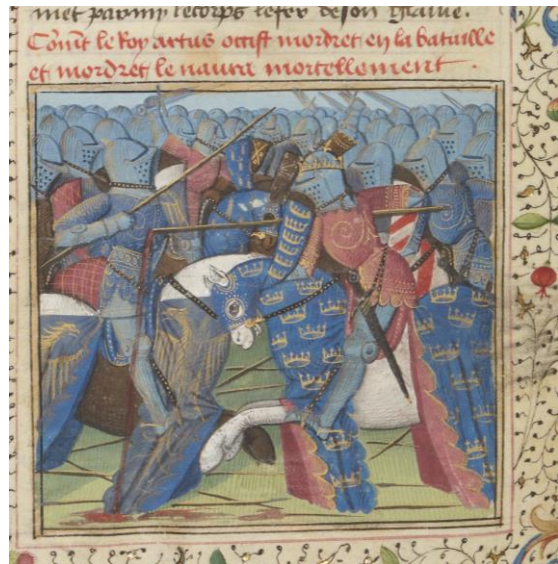 met parmy le corps le fer de son glaive.
Com̄t le Roy artus occist mordret en la bataille
et mordret le navra mortellement .